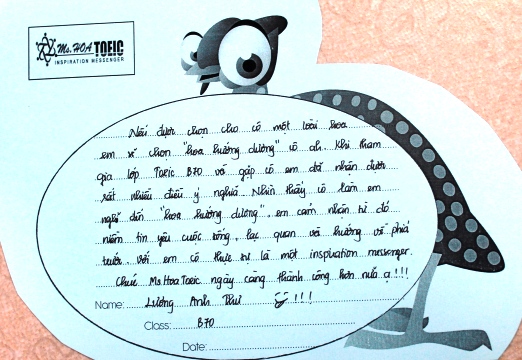 Ms. HOA TOEIC
INSPIRATION MESSENGER
Nếu được chọn cho cô một loài hoa
em sẽ chọn "hoa hướng dương" cô ah. Khi tham
gia lớp TOEIC B70 và gặp cô em đã nhận được
rất nhiều điều ý nghĩa. Nhìn thấy cô làm em
nghĩ đến "hoa hướng dương" em cảm nhận từ đó
niềm tin yêu cuộc sống, lạc quan và hướng về phía
trước. Với em cô thực sự là một inspiration messenger.
Chúc Ms Hoa Toeic ngày càng thành công hơn nữa ạ!!!
Name: Lương Anh Thư !!!
Class: B70
Date: